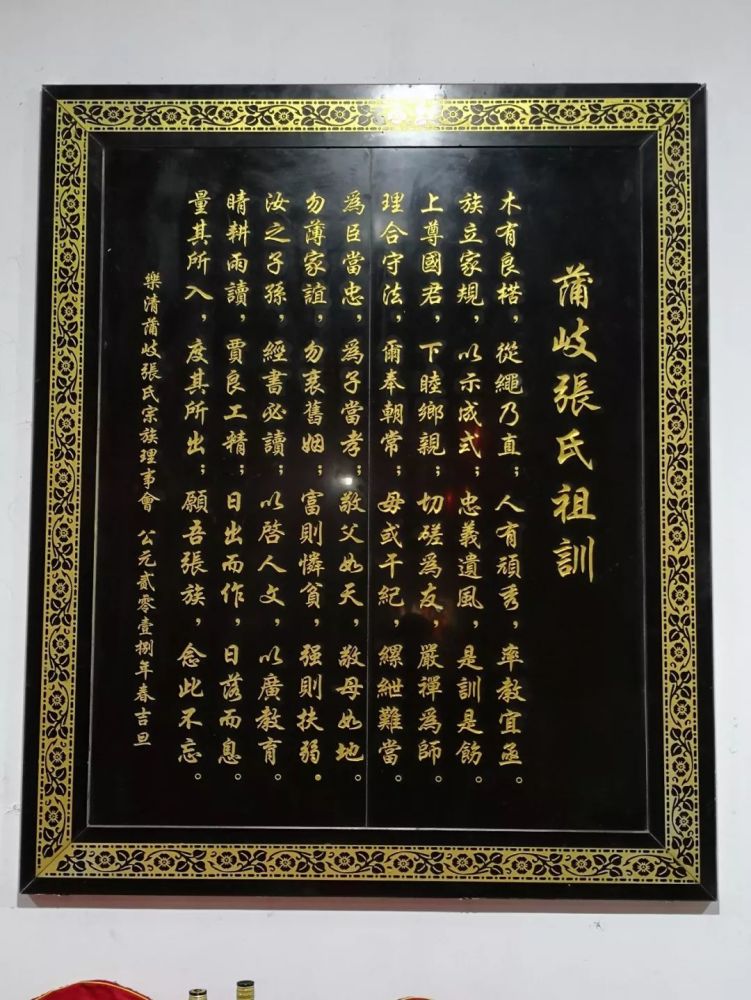 蒲岐張氏祖訓
木有良楛，從繩乃直；人有頑秀，率教宜亟。
族立家規，以示成式；忠義遺風，是訓是飭。
上尊國君，下睦鄉親；切磋爲友，嚴禪爲師。
理合守法，爾奉朝常；毋或干紀，縲紲難當。
爲臣當忠，爲子當孝；敬父如天，敬母如地。
勿薄家誼，勿衰舊姻；富則憐貧，强則扶弱。
汝之子孫，經書必讀；以啓人文，以廣教育。
晴耕雨讀，賈良工精；日出而作，日落而息。
量其所入，度其所出；願吾張族，念此不忘。
樂清蒲岐張氏宗族理事會 公元貳零壹捌年春吉旦